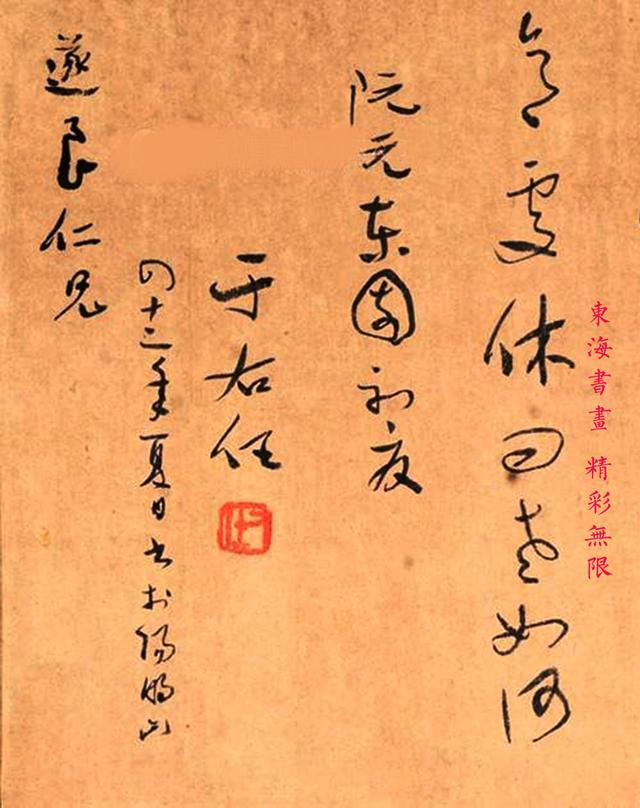 東海書畫 精彩無限
休 老如何
阮元東園初
于右任
四十三年夏日書於陽明山
遂良仁兄